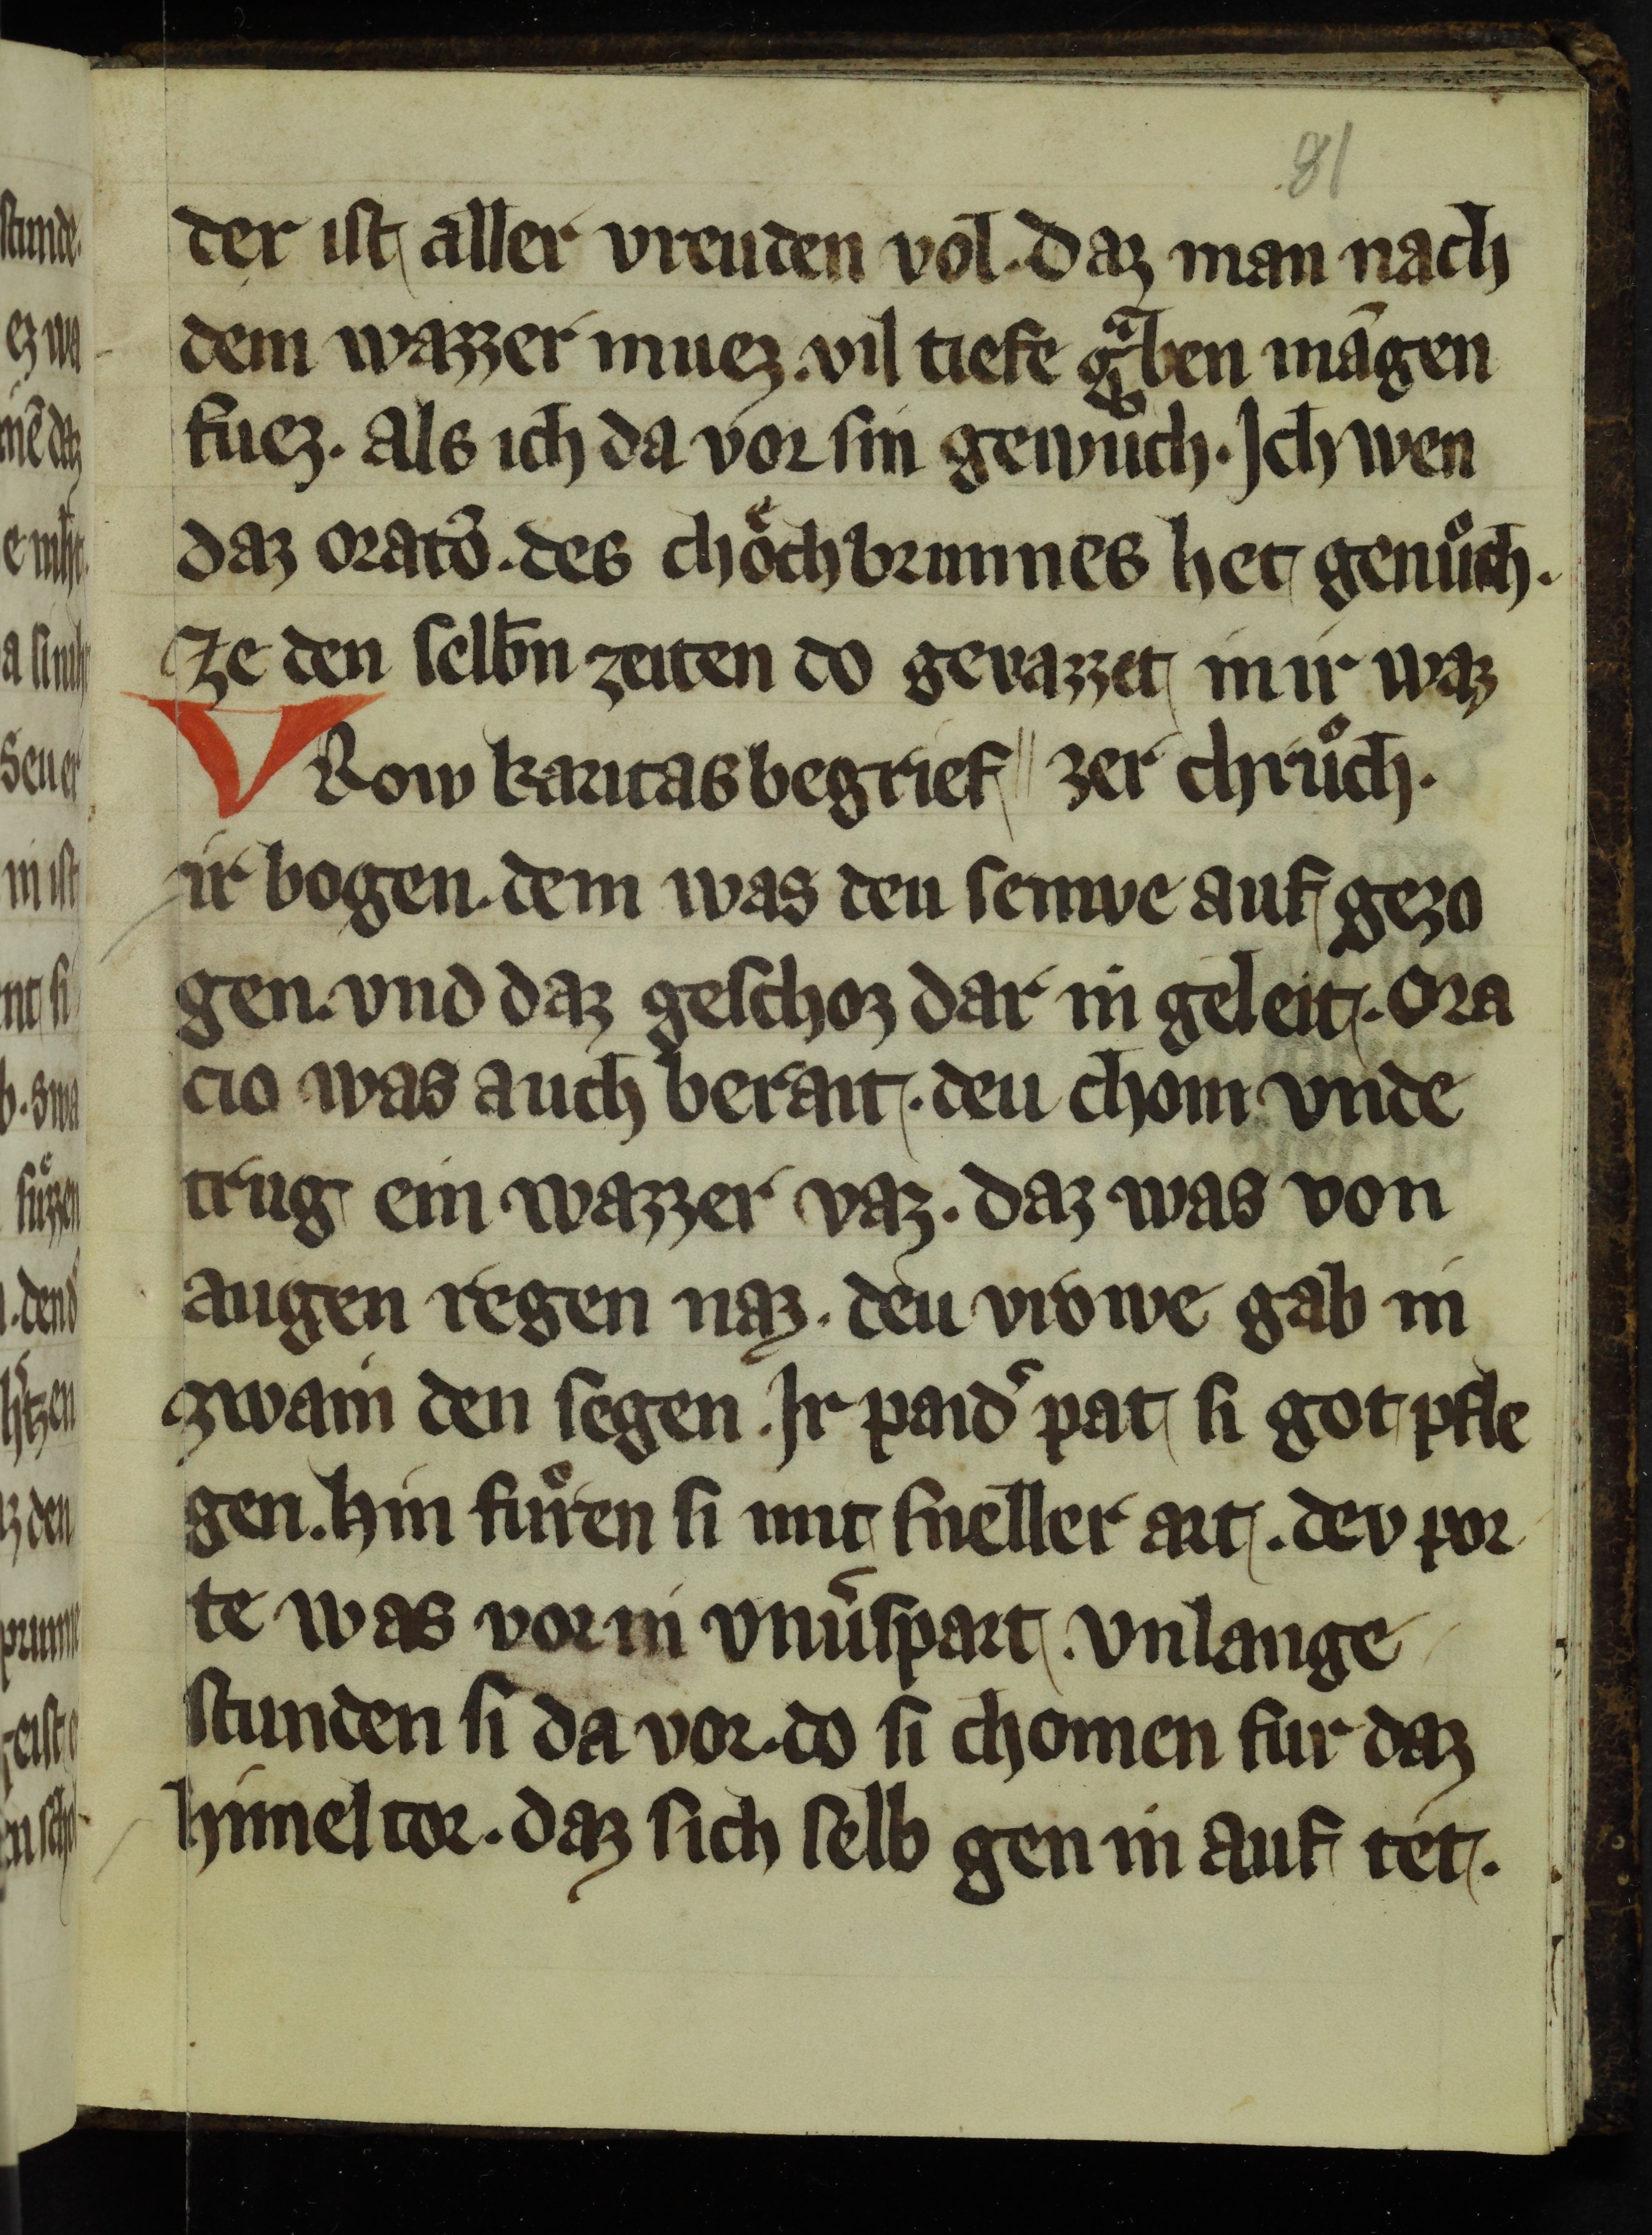 81
der ist aller vreuden vol. daz man nach
dem wazzer muez. vil tiefe gͣben mā́gen
fuez. als ich da vor sin gewuͦch. Ich wen
daz orato᷑. des choͤchbrunnes het genuͦch.
Ze den selbn̄ zeiten do gevazzet in ir waz
VRow karitas begrief zer chruͦch.
ir bogen. dem was deu senwe auf gezo
gen. vnd daz geschoz dar in geleit. Ora
cio was auch berait. deu chom vnde
trug ein wazzer vaz. daz was von
augen regen naz. deu vrowe gab in
zwain den segen. Ir paid᷑ pat si got pfle
gen. hin fuͦren si mit sneller art. dev por
te was vor in vnu᷑spart. vnlange
stunden si da vor. do si chomen fur daz
himel tor. daz sich selb gen in auf tet.